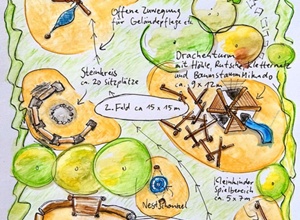 Offene Zuwegung
für Geländepflege etc
Drachenturm
mit Höhle, Rutsche, Kletternetz
und Baumstamm Mikado
ca. 9 x 12 m
Steinkreis
ca. 20 Sitzplätze
2. Feld ca 15 x 15 m
Kleinkinder
spielbereich
ca. 5 x 7 m
Nestschaukel